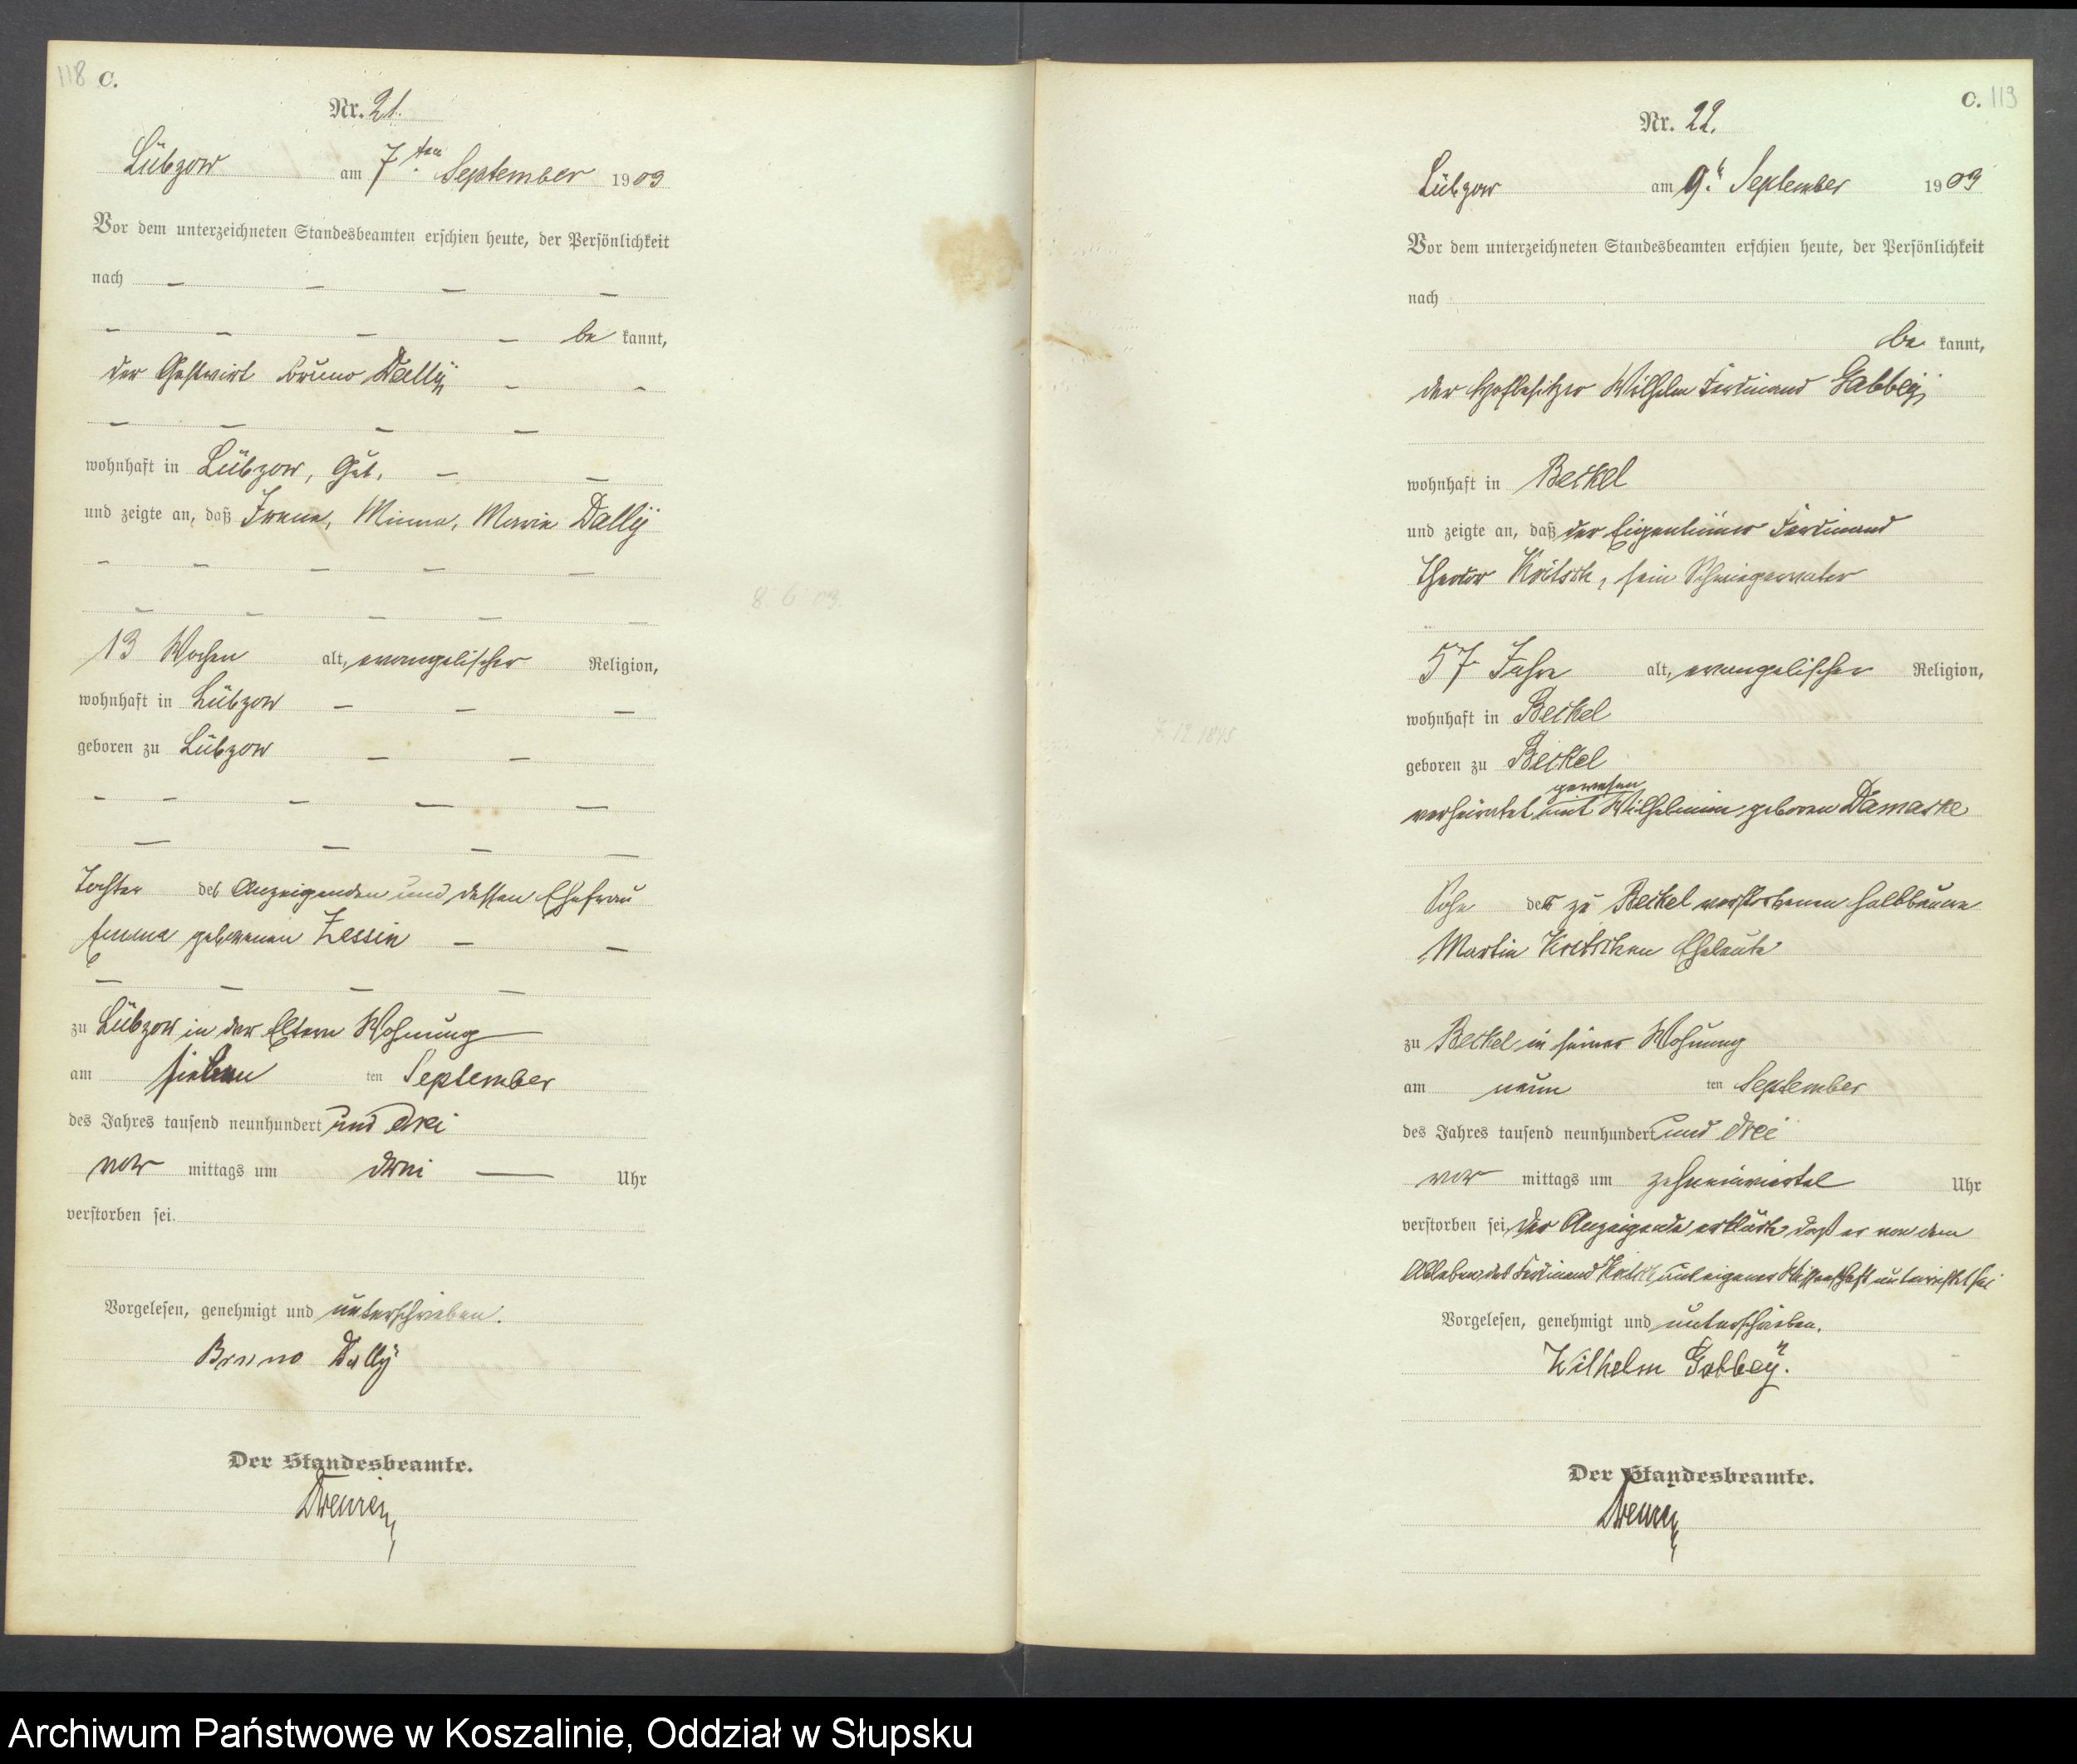 118 C.
Nr. 21.
Lübzow am 7ten September 1903
Vor dem unterzeichneten Standesbeamten erschien heute, der Persönlichkeit
nach — — — —
— — — — be kannt,
der Gastwirt Bruno Dallÿ, — —
— — — —
wohnhaft in Lübzow, Gut, — —
und zeigte an, daß Irene, Minna, Maria Dallÿ
— — — — —
— — — — —
13 Wochen alt, evangelischer Religion,
wohnhaft in Lübzow — — —
geboren zu Lübzow — —
— — — — —
— — — —
Tochter des Anzeigenden und dessen Ehefrau
Emma geborenen Zessin — —
— — — —
zu Lübzow in der Eltern Wohnung —
am sieben ten September
des Jahres tausend neunhundert und drei
vor mittags um drei — Uhr
verstorben sei.
Vorgelesen, genehmigt und unterschrieben.
Bruno Dallÿ
Der Standesbeamte.
8 6 03
C. 119
Nr. 22.
Lübzow am 9. September 1903
Vor dem unterzeichneten Standesbeamten erschien heute, der Persönlichkeit
nach
be kannt,
der Hofbesitzer Wilhelm Ferdinand Gabbeÿ,
wohnhaft in Beckel
und zeigte an, daß der Eigentümer Ferdinand
Theodor Koitsch, sein Schwiegervater
57 Jahre alt, evangelischer Religion,
wohnhaft in Beckel
geboren zu Beckel
gewesen
verheiratet mit Wilhelmine geboren Damaske
Sohn der zu Beckel verstorbenen Halbbauer
Martin Koitschen Eheleute
zu Beckel in seiner Wohnung
am neun ten September
des Jahres tausend neunhundert und drei
vor mittags um zehneinviertel Uhr
verstorben sei. Der Anzeigende erklärte, daß er von dem
Ableben des Ferdinand Koitsch aus eigener Wissenschaft unterrichtet sei
Vorgelesen, genehmigt und unterschrieben.
Wilhelm Gabbeÿ.
Der Standesbeamte.
7. 12. 1845
Archiwum Państwowe w Koszalinie, Oddział w Słupsku